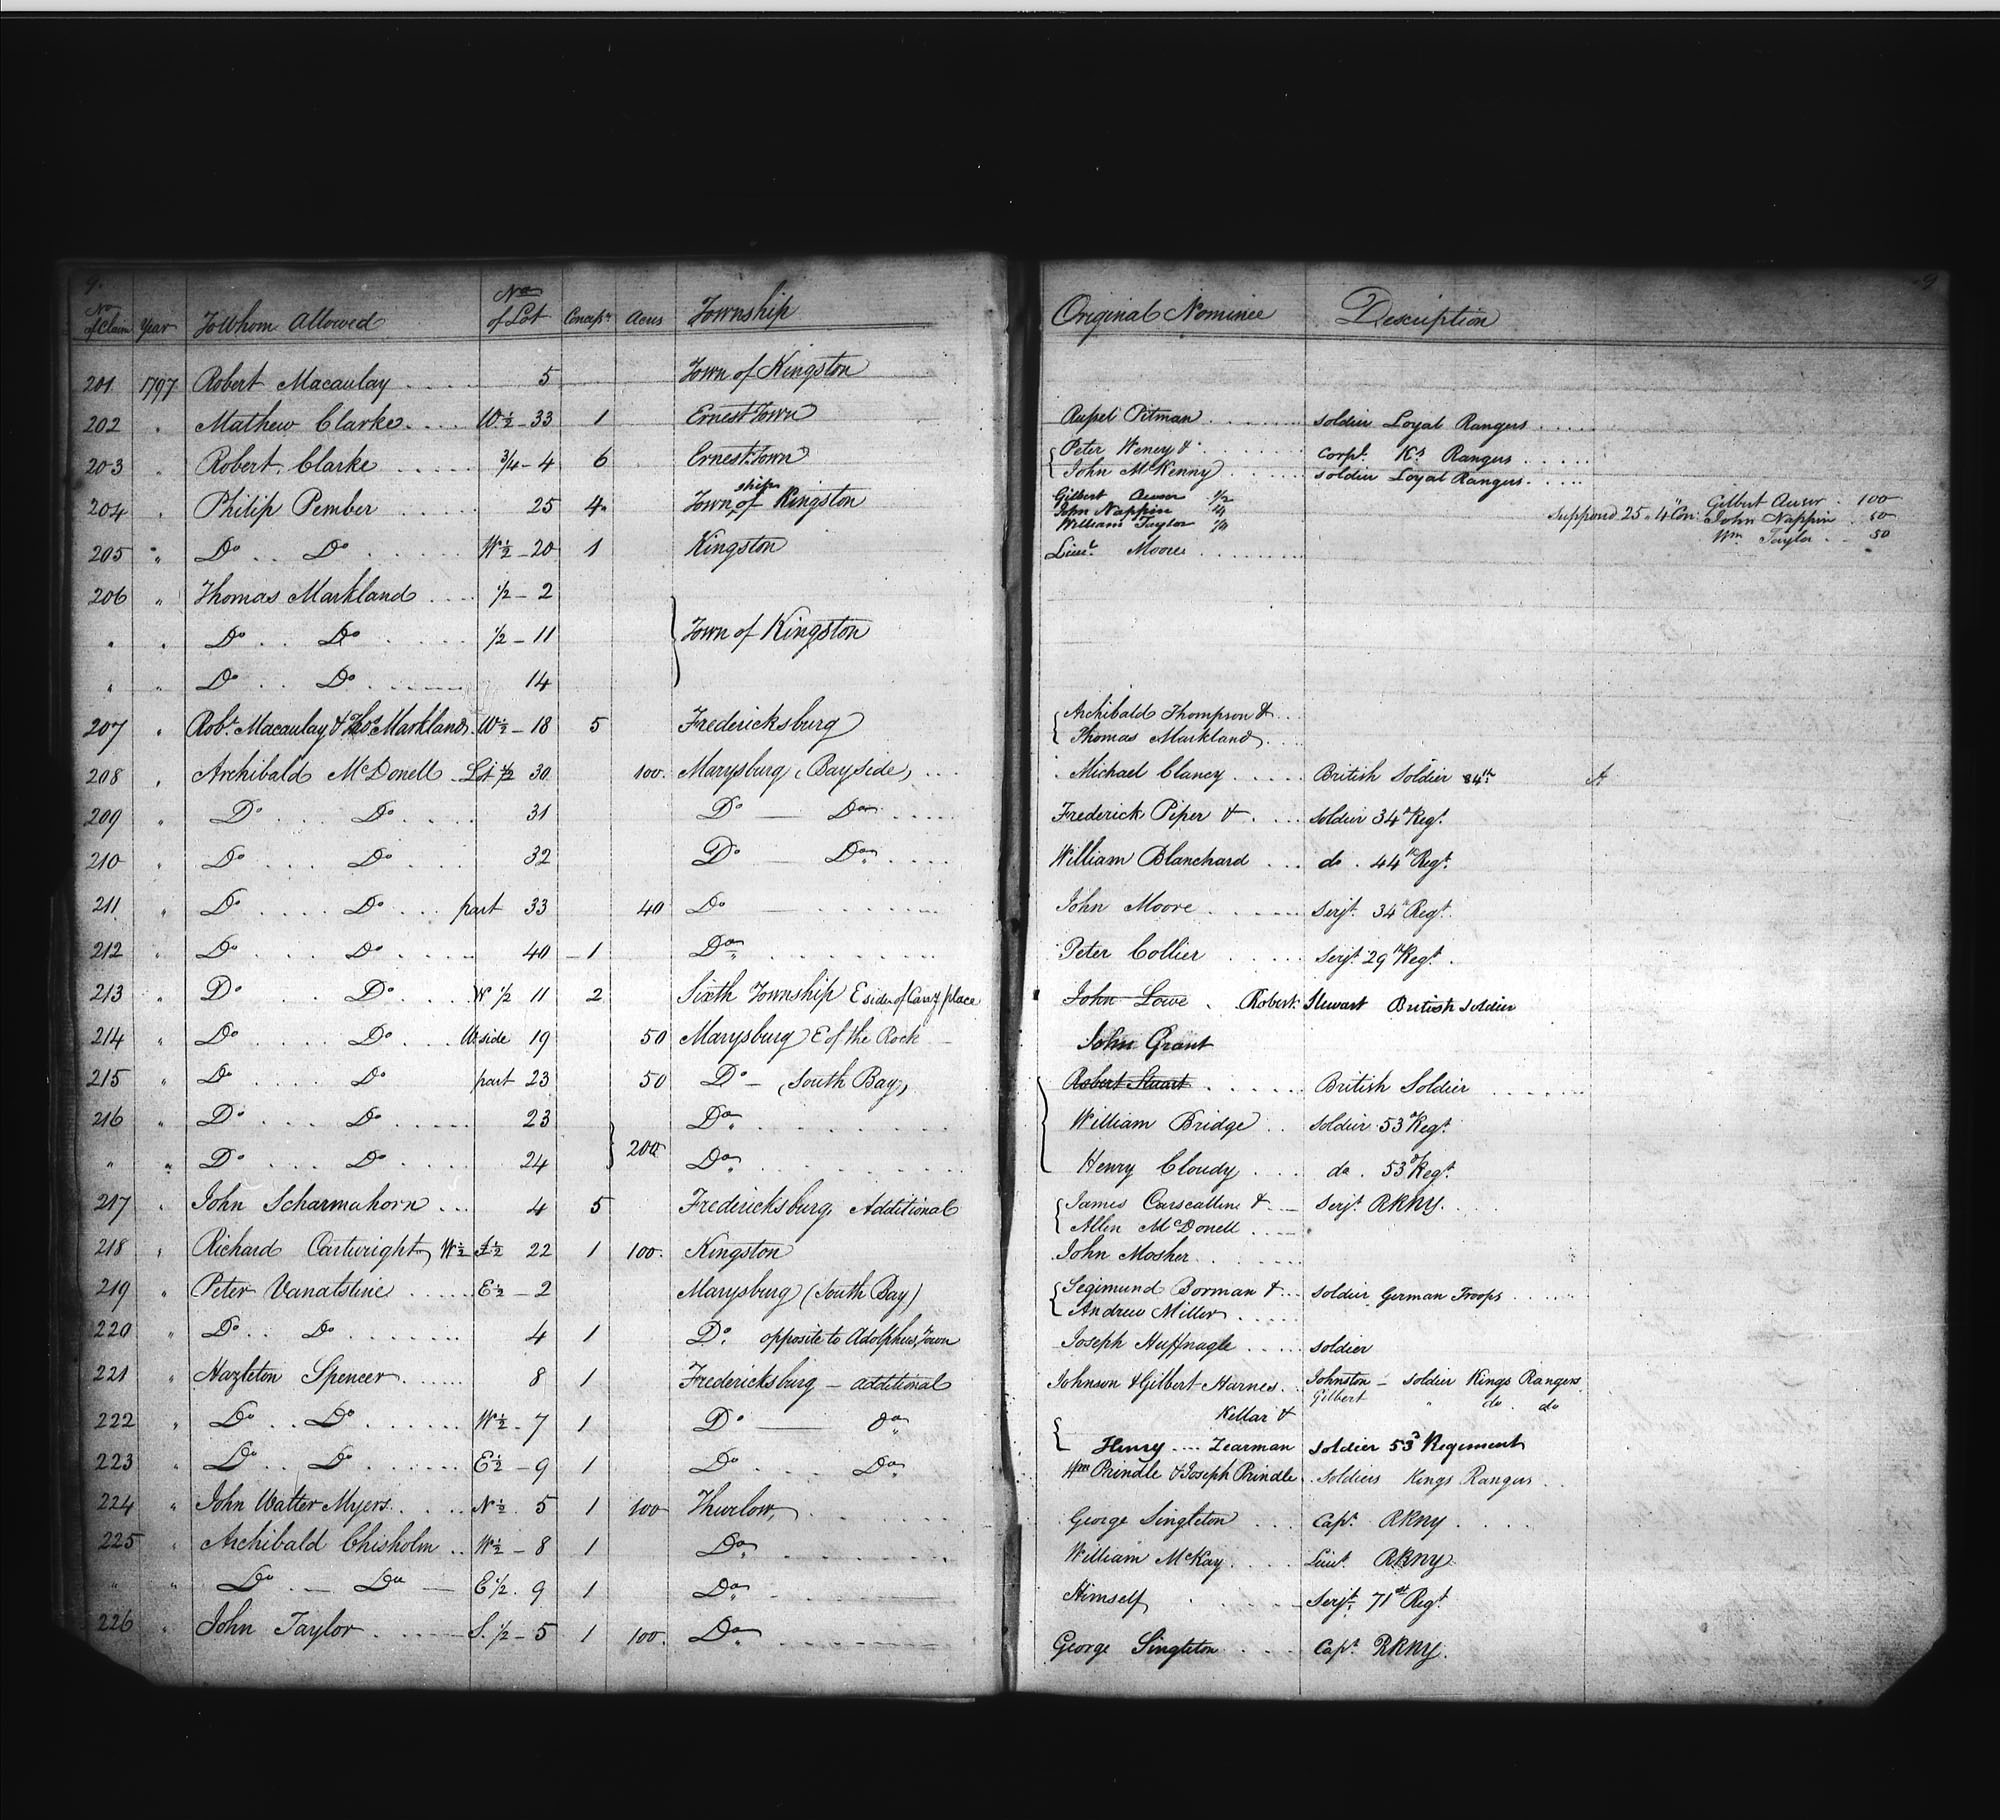 9.
No of Claim Year To Whom Allowed No of Lot Concess.n Acres Township
201 1797 Robert Macaulay 5 Town of Kingston
202 " Mathew Clarke W ½ - 33 1 Ernest Town
203 " Robert Clarke ¾ - 4 6 Ernest Town
204 " Philip Pember 25 4 Township of Kingston
205 " Do Do W ½ - 20 1 Kingston
206 " Thomas Markland ½ - 2
" " Do Do ½ - 11 Town of Kingston
" " Do Do 14
207 " Robt. Macaulay & Thos Markland W ½ - 18 5 Fredericksburg
208 " Archibald McDonell Lot ½ 30 100 Marysburg (Bay side)
209 " Do Do 31 Do — Do
210 " Do Do 32 Do — Do
211 " Do Do part 33 40 Do —
212 " Do Do 40 - 1 Do
213 " Do Do W ½ 11 2 Sixth Township E side of Carry place
214 " Do Do W side 19 50 Marysburg E of the Rock
215 " Do Do part 23 50 Do - (South Bay)
216 " Do Do 23 Do
" " Do Do 24 200 Do
217 " John Scharmahorn 4 5 Fredericksburg Additional
218 " Richard Cartwright W ½ 22 1 100 Kingston
219 " Peter Vanatstine E ½ - 2 Marysburg (South Bay)
220 " Do Do 4 1 Do. opposite to Adolphus Town
221 " Hazleton Spencer 8 1 Fredericksburg - additional
222 " Do Do W ½ - 7 1 Do — do
223 " Do Do E ½ - 9 1 Do Do
224 " John Walter Myers N ½ 5 1 100 Thurlow
225 " Archibald Chisholm W ½ - 8 1 Do
" " Do — Do — E ½ 9 1 Do
226 " John Taylor S. ½ - 5 1 100 Do
9
Original Nominee Description
Rupel Pitman soldier Loyal Rangers
Peter Weney & Corpl. Ks Rangers
John McKenny soldier Loyal Rangers
Gilbert Auser ½
John Nappin ¼
William Taylor ¼
Supposed 25 " 4 Con: Gilbert Auser 100
John Nappin 50
Wm Taylor 50
Lieut. Moore
Archibald Thompson &
Thomas Markland
Michael Clancy British Soldier 84th A
Frederick Piper & Soldier 34th Regt.
William Blanchard do. 44th Regt.
John Moore Serjt. 34th Regt.
Peter Collier Serjt. 29th Regt.
John Lowe Robert Stewart British soldier
John Grant
Robert Stuart British Soldier
William Bridge Soldier 53d Regt.
Henry Cloudy do. 53d Regt.
James Carscallen & Serjt. RRNY.
Allen McDonell
John Mosher
Segimund Borman & soldier German Troops
Andrew Miller
Joseph Huffnagle soldier
Johnson & Gilbert Harnes Johnston - soldier Kings Rangers
Gilbert " do do
Kellar &
Henry Zearman soldier 53d Regiment
Wm Prindle & Joseph Prindle Soldiers Kings Rangers
George Singleton Capt. RRNY
William McKay Lieut. RRNY
Himself Serjt. 71st Regt.
George Singleton Capt RRNY.